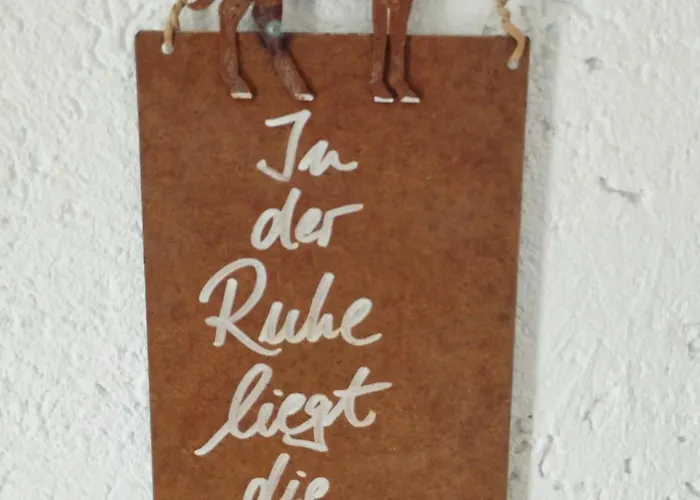 In
der
Ruhe
liegt
die